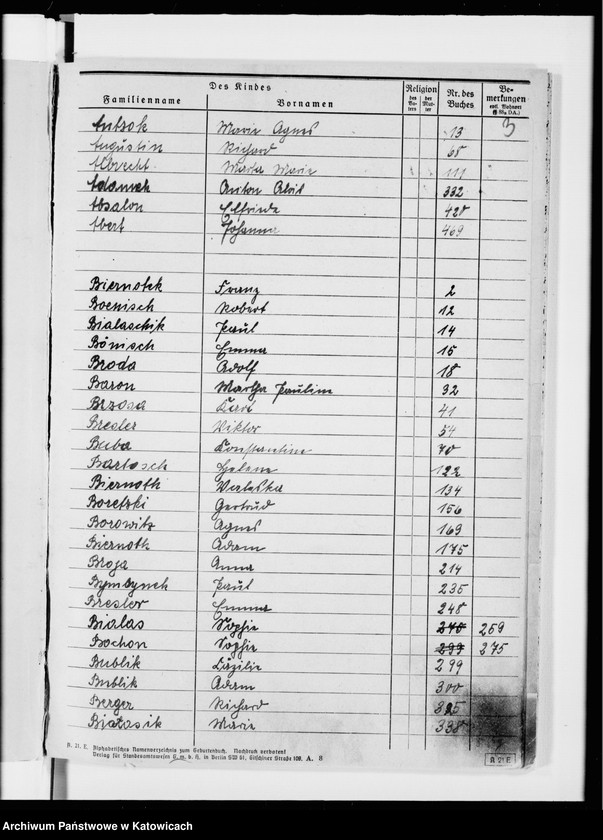 Des Kindes
Religion
Nr. des Buches
Be-merkungen
Familienname Vornamen des Va-ters der Mut-ter evtl. Wohnort (§ 55g DA.)
3
Antzok Marie Agnes 13
Augustin Richard 68
Albrecht Marta Marie 111
Adamek Anton Aloil 332
Absalon Elfriede 420
Abert Johanna 469
Biernotek Franz 2
Boenisch Robert 12
Bialaschik Paul 14
Bönisch Emma 15
Broda Adolf 18
Baron Martha Pauline 32
Brzosa Karl 41
Bresler Viktor 54
Buba Konstantine 70
Bartosch Helene 122
Biernoth Valeska 134
Boretzki Gertrud 156
Borowitz Agnes 169
Biernoth Adam 175
Broja Anna 214
Paul 235
Bresler Emma 248
Bialas Sophie 259
Bochon Sophie 275
Bublik Cäzilie 299
Bublik Adam 300
Berger Richard
Białasik Marie 338
A 21 E. Alphabetisches Namenverzeichnis zum Geburtenbuch. Nachdruck verboten!
Verlag für Standesamtswesen G. m. b. H. in Berlin SW 61, Gitschiner Straße 109. A. 8
A 21 E
Archiwum Państwowe w Katowicach